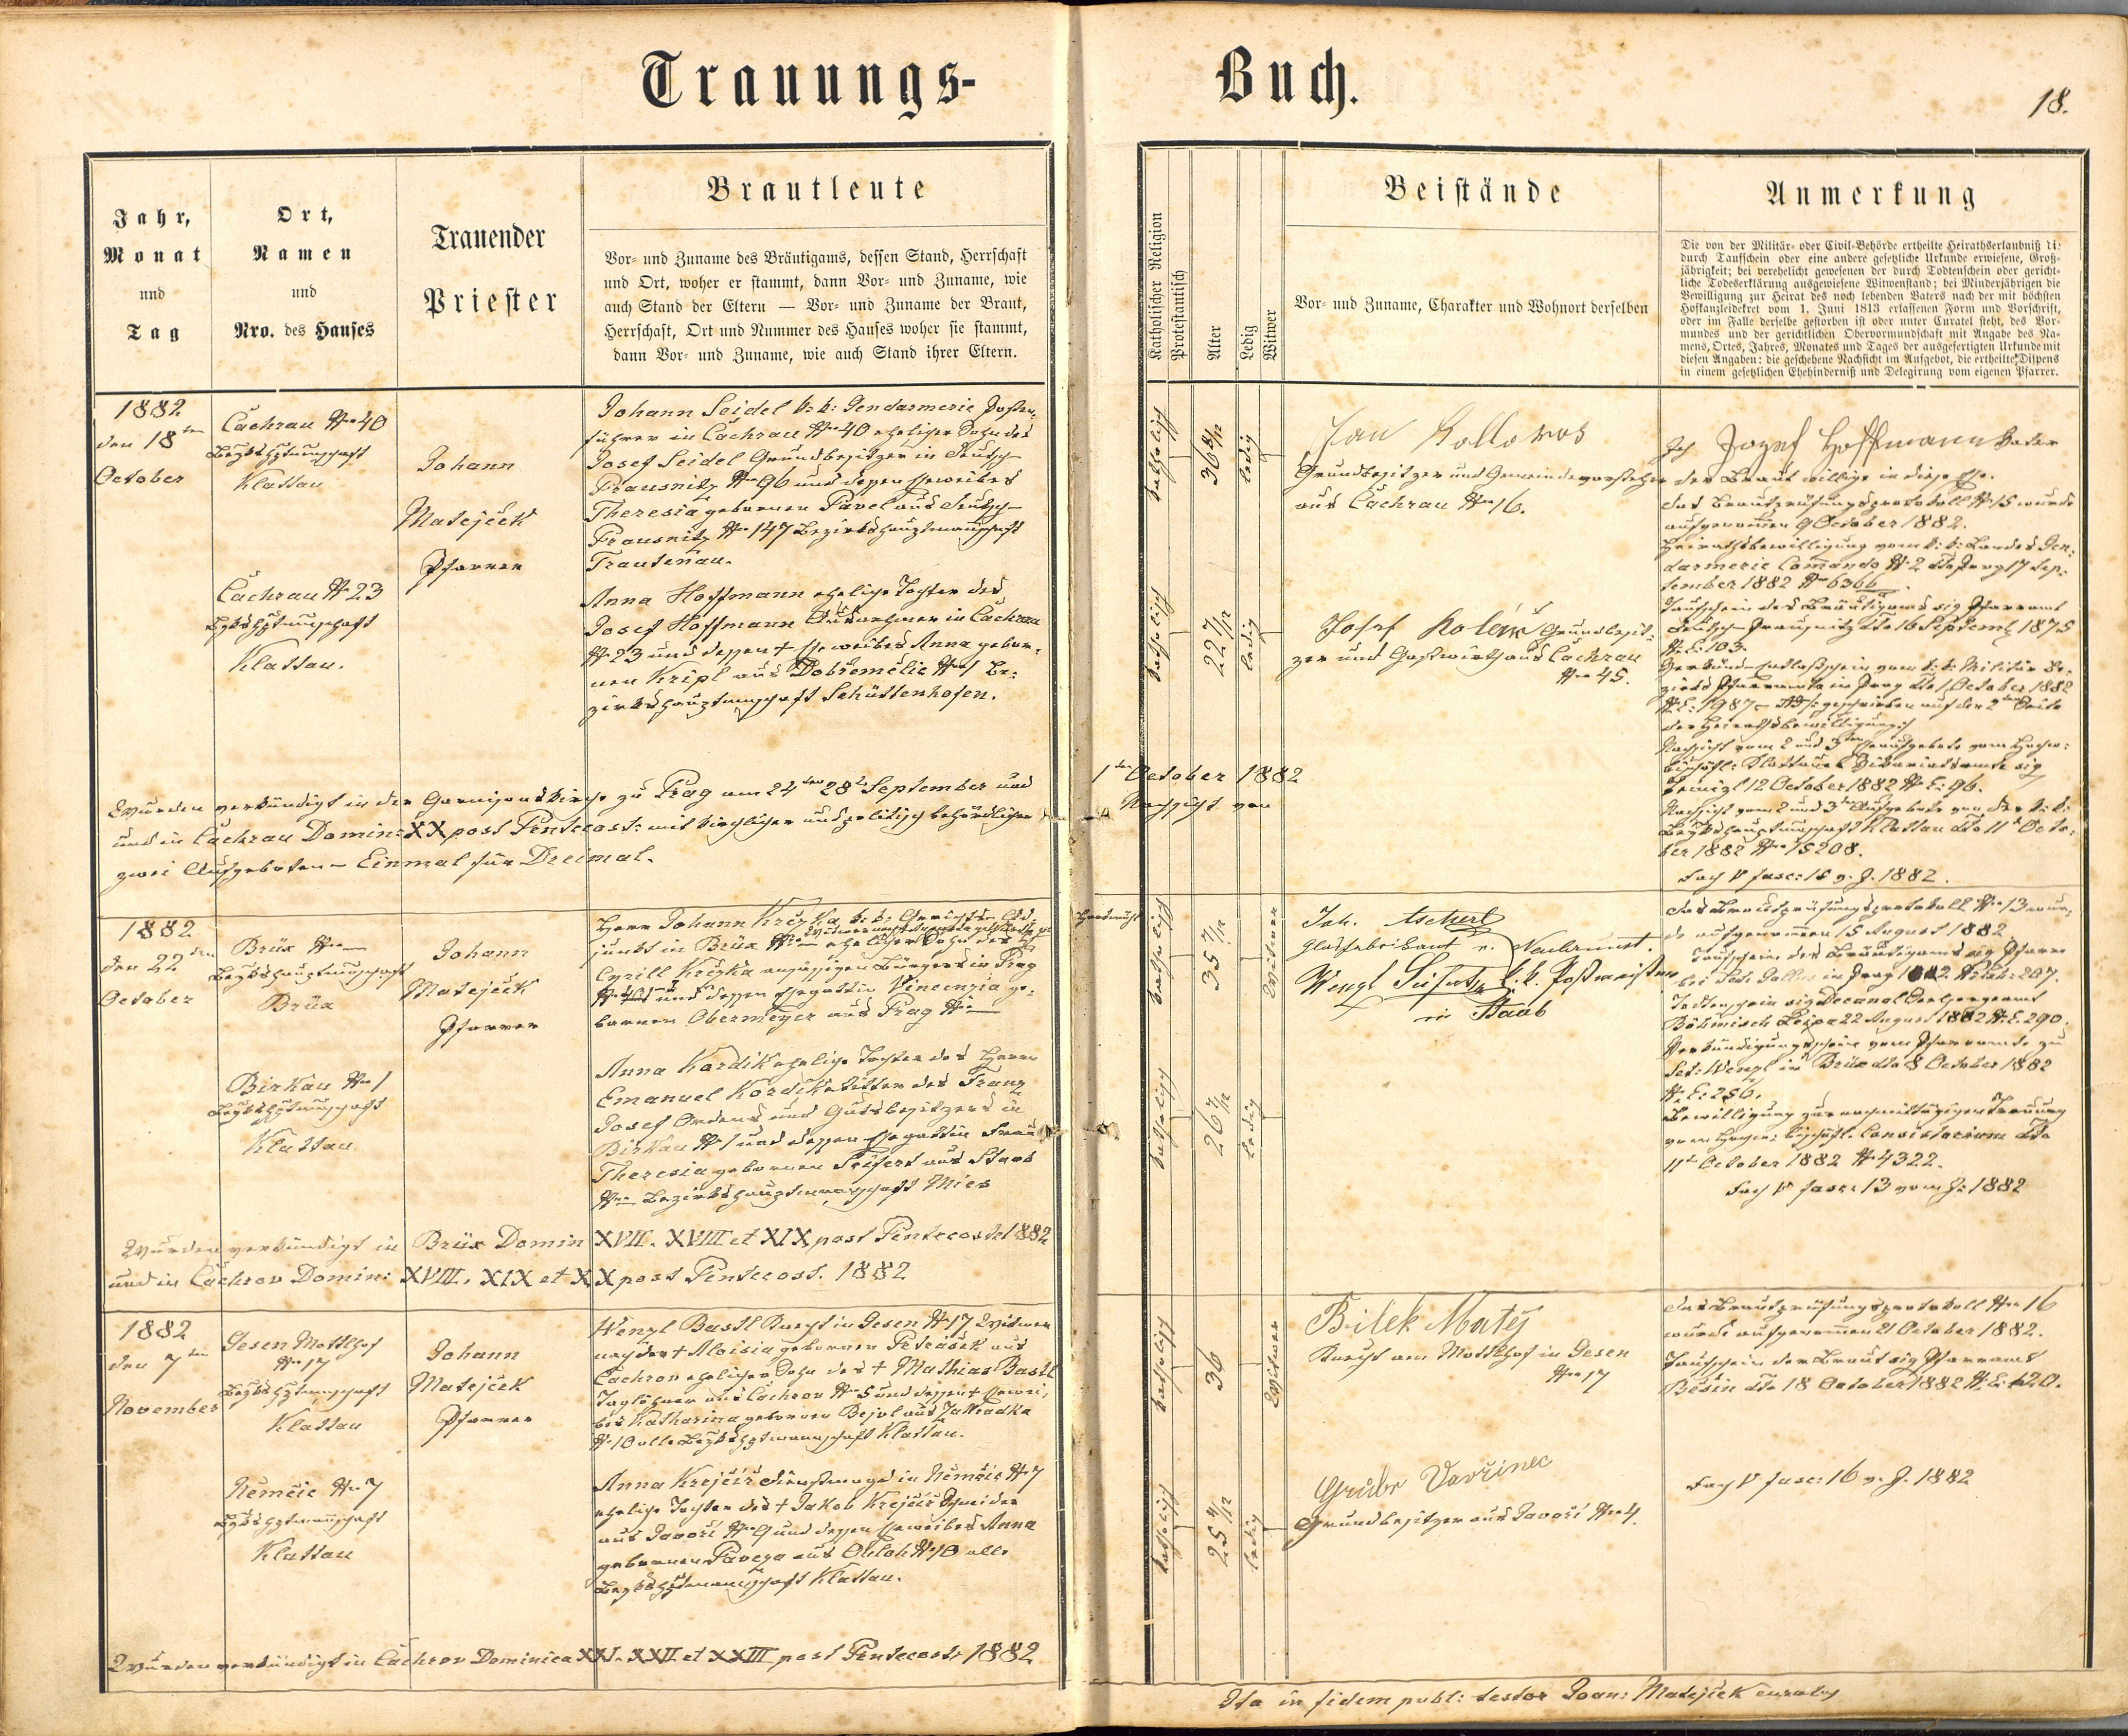 Trauungs-
Buch.
18.
Jahr,
Monat
und
Tag
Ort,
Namen
und
Nro. des Hauses
Trauender
Priester
Brautleute
Vor- und Zuname des Bräutigams, dessen Stand, Herrschaft
und Ort, woher er stammt, dann Vor- und Zuname, wie
auch Stand der Eltern — Vor- und Zuname der Braut,
Herrschaft, Ort und Nummer des Hauses woher sie stammt,
dann Vor- und Zuname, wie auch Stand ihrer Eltern.
Katholischer Religion
Protestantisch
Alter
Ledig
Witwer
Beistände
Vor- und Zuname, Charakter und Wohnort derselben
Anmerkung
Die von der Militär- oder Civil-Behörde ertheilte Heirathserlaubniß
durch Taufschein oder eine andere gesetzliche Urkunde erwiesene, Groß-
jährigkeit; bei verehelicht gewesenen der durch Todtenschein oder gericht-
liche Todeserklärung ausgewiesene Witwenstand; bei Minderjährigen die
Bewilligung zur Heirat des noch lebenden Vaters nach der mit höchsten
Hofkanzleidekret vom 1. Juni 1813 erlassenen Form und Vorschrift,
oder im Falle derselbe gestorben ist oder unter Curatel steht, des Vor-
mundes und der gerichtlichen Obervormundschaft mit Angabe des Na-
mens, Ortes, Jahres, Monates und Tages der ausgefertigten Urkunde mit
diesen Angaben: die geschehene Nachsicht im Aufgebot, die ertheilte Dispens
in einem gesetzlichen Ehehinderniß und Delegirung vom eigenen Pfarrer.
1882
den 18ten
October
Čachrau Nro 40
Bezirkshptmannschaft
Klattau
Čachrau N 23
Bzkshptmannschaft
Klattau.
Johann
Matějček
Pfarrer
Johann Seidel k: k: Gendarmerie Posten-
führer in Čachrau Nro 40 ehelicher Sohn des
Josef Seidel Grundbesitzer in Deutsch-
Prausnitz Nro 96 und dessen Eheweibes
Theresia gebornen Pavel aus Deutsch-
Prausnitz Nro 147 Bezirkshauptmannschaft
Trautenau.
Anna Hoffmann eheliche Tochter des
Josef Hoffmann Ausnehmer in Čachrau
N 23 und dessen † Eheweibes Anna gebor-
nen Kripl aus Dobřemělic N 1 Be-
zirkshauptmannschaft Schüttenhofen.
katholisch
36 8/12
ledig
katholisch
22 7/12
ledig
Jan Kolloros
Grundbesitzer und Gemeindevorsteher
aus Čachrau Nro 16.
Josef Kolář Grundbesit-
zer und Gastwirth aus Čachrau
Nro 45.
Ich Jozef Hoffmann Vater
der Braut willige in diese Ehe.
Das Brautprüfungsprotokoll N 15 wurde
aufgenommen 9 October 1882.
Heirathsbewilligung vom k: k: Landes Gen-
darmerie Comando N 2 dto Prag 17 Sep-
tember 1882 N 6366
Taufschein des Bräutigams sig Pfarramt
Deutsch-Prausnitz dto 16 Septemb 1875
N E: 103.
October 1882
der Heirathsbewilligung
12 October 1882 N E: 96.
Bezirkshauptmannschaft Klattau dto 11 Octo-
ber 1882 Nro 15208.
Fach V fasc: 15 v. J. 1882.
Wurden verkündigt in der Garnisonskirche zu Prag am 24ten 28t September und
1ten October 1882
und in Čachrau Domin: XX post Pentecost: mit kirchlicher und politisch behördlicher
Nachsicht von
zwei Aufgeboten – Einmal für Dreimal.
1882
den 22ten
October
Brüx Nro —
Bezirkshauptmannschaft
Brüx
Birkau Nro 1
Bezirkshptmannschaft
Klattau
Johann
Matějček
Pfarrer
Herr Johann Kričžka k: k: Gerichts Ad-
junkt in Brüx Nro — ehelicher Sohn des
Cyrill Kričžka ansässigen Bürgers in Prag
und dessen Ehegattin Vincenzia ge-
bornen Obermeyer aus Prag N —
Anna Kordik eheliche Tochter des Herrn
Emanuel Kordik Ritter des Franz
Josef Ordens und Gutsbesitzers in
Birkau N 1 und dessen Ehegattin Frau
Theresia gebornen Seifert aus Staab
Nro — Bezirkshauptmannschaft Mies
katholisch
35 7/12
Witwer
katholisch
26 7/12
ledig
Joh. Tscherl
Glasfabrikant
Wenzl Seifert k. k. Postmeister
in Staab
Das Brautprüfungsprotokoll Nro 13 wur-
de aufgenommen 15 August 1882
Taufschein des Bräutigams sig Pfarre
bei Sct. Gallus in Prag
Todtenschein sig Decanal Seelsorgeamt
Böhmisch Leipa 22 August 1882 N: E. 290.
Verkündigungsschein vom Pfarramte zu
Sct: Wenzl in Brüx dto 8 October 1882
N: E: 256.
Bewilligung zur nachmittägigen Trauung
vom Hochw: bischöfl. Consistorium dto
11t October 1882 N 4322.
Fach V fasc: 13 vom J: 1882
Wurden verkündigt in Brüx Domin XVII. XVIII et XIX post Pentecost 1882
und in Čachrov Domin: XVIII, XIX et XX post Pentecost. 1882
1882
den 7ten
November
Jesen Mottlhof
Nro 17
Bezirkshptmannschaft
Klattau
Němčic Nro 7
Bzkshptmannschaft
Klattau
Johann
Matějček
Pfarrer
Wenzl Bastl Knecht in Jesen N 17 Witwer
nach der † Aloisia gebornen Petrášek aus
Čachrov ehelicher Sohn des † Mathias Bastl
Taglöhner aus Čachrov Nro 5 und dessen † Ehewei-
bes Katharina gebornen Bejvl aus Zahradka
N 10 alle Bezkshptmannschaft Klattau.
Anna Krejčíř Dienstmagd in Němčic N 7
eheliche Tochter des † Jakob Krejčíř Schneider
aus Javoří Nro 9 und dessen Eheweibes Anna
gebornen aus N 10 alle
Bezkshptmannschaft Klattau.
katholisch
36
Witwer
katholisch
25 4/12
ledig
Bilek Matěj
Knecht am Mottlhof in Jesen
Nro 17
Grubr Vavřinec
Grundbesitzer aus Javoří Nro 4.
Das Brautprüfungsprotokoll Nro 16
wurde aufgenommen 21 October 1882.
Taufschein der Braut sig Pfarramt
Běšin dto 18 October 1882 N: E:
Fach V fasc: 16 v. J. 1882
Wurden verkündigt in Čachrov Dominica XXI. XXII et XXIII post Pentecost: 1882
Ita in fidem publ: testor Joan: Matějček curatus